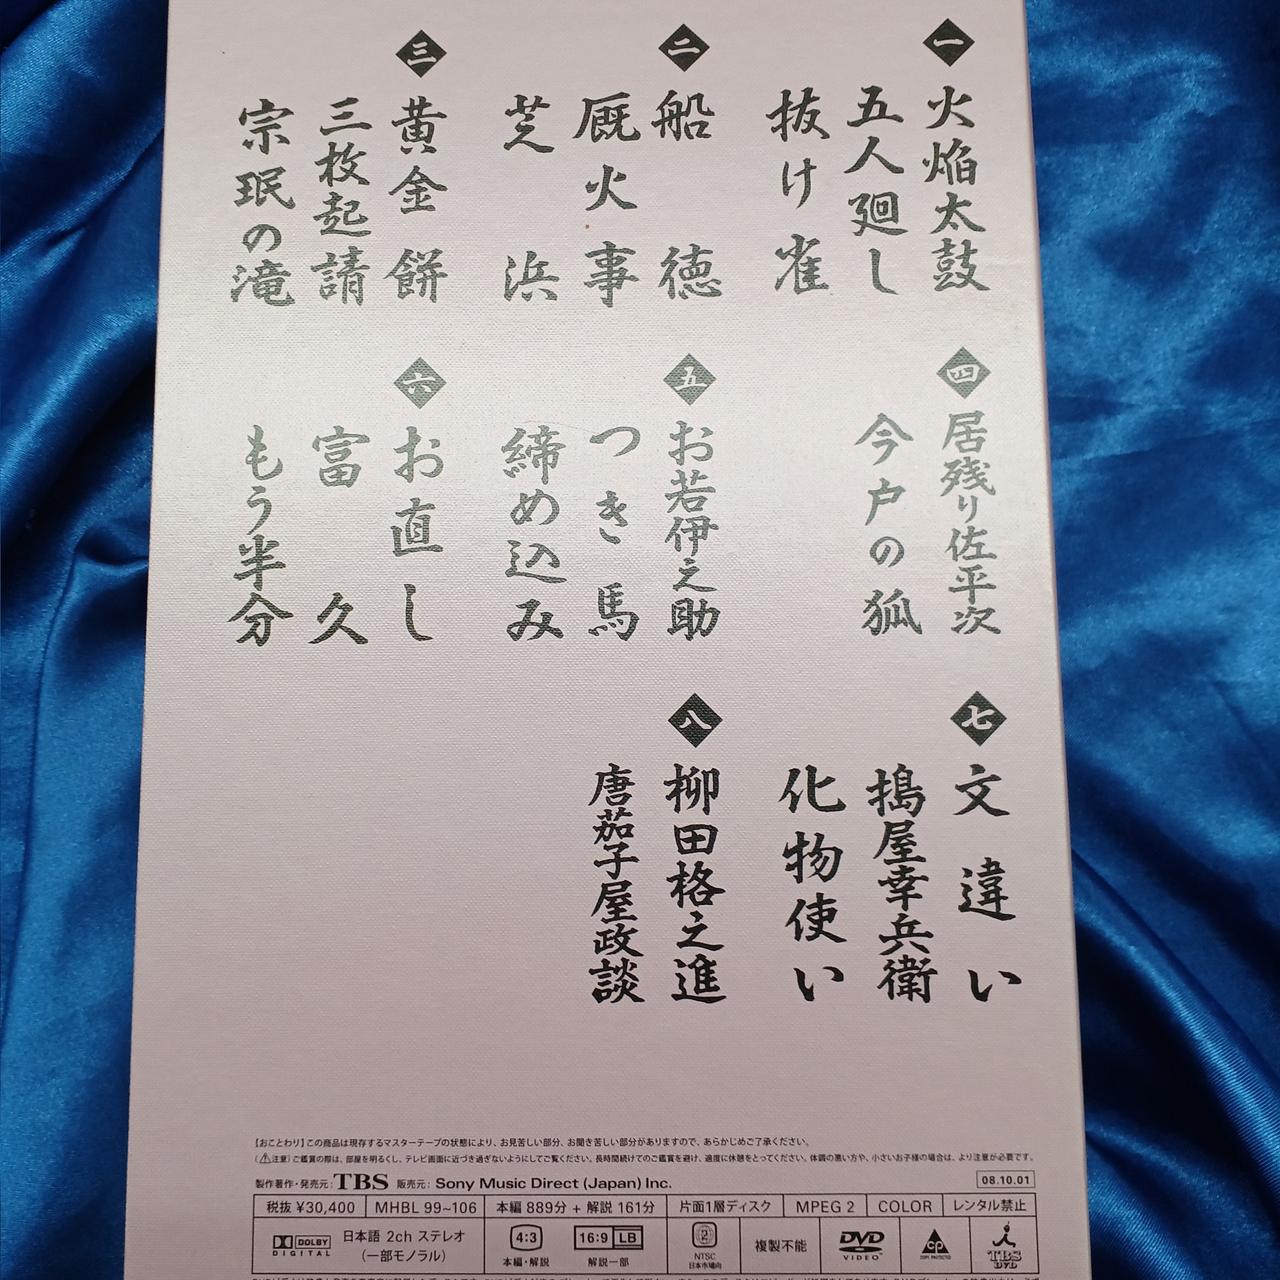 一
火焔太鼓
五人廻し
抜け雀
二
船徳
厩火事
芝浜
三
黄金餅
三枚起請
宗珉の滝
四
居残り佐平次
今戸の狐
五
お若伊之助
つき馬
締め込み
六
お直し
富久
もう半分
七
文違い
搗屋幸兵衛
化物使い
八
柳田格之進
唐茄子屋政談
【おことわり】この商品は現存するマスターテープの状態により、お見苦しい部分、お聞き苦しい部分がありますので、あらかじめご了承ください。
(⚠注意)ご鑑賞の際は、部屋を明るくし、テレビ画面に近づき過ぎないようにしてご覧ください。長時間続けてのご鑑賞を避け、適度に休憩をとってください。体調の悪い方や、小さいお子様の場合は、より注意が必要です。
製作著作・発売元:TBS 販売元:Sony Music Direct (Japan) Inc. 08.10.01
税抜 ¥30,400 MHBL 99~106 本編 889分 + 解説 161分 片面1層ディスク MPEG 2 COLOR レンタル禁止
DOLBY DIGITAL 日本語 2ch ステレオ (一部モノラル) 4:3 本編・解説 16:9 LB 解説一部 2 NTSC 日本市場向 複製不能 DVD VIDEO CP TBS DVD